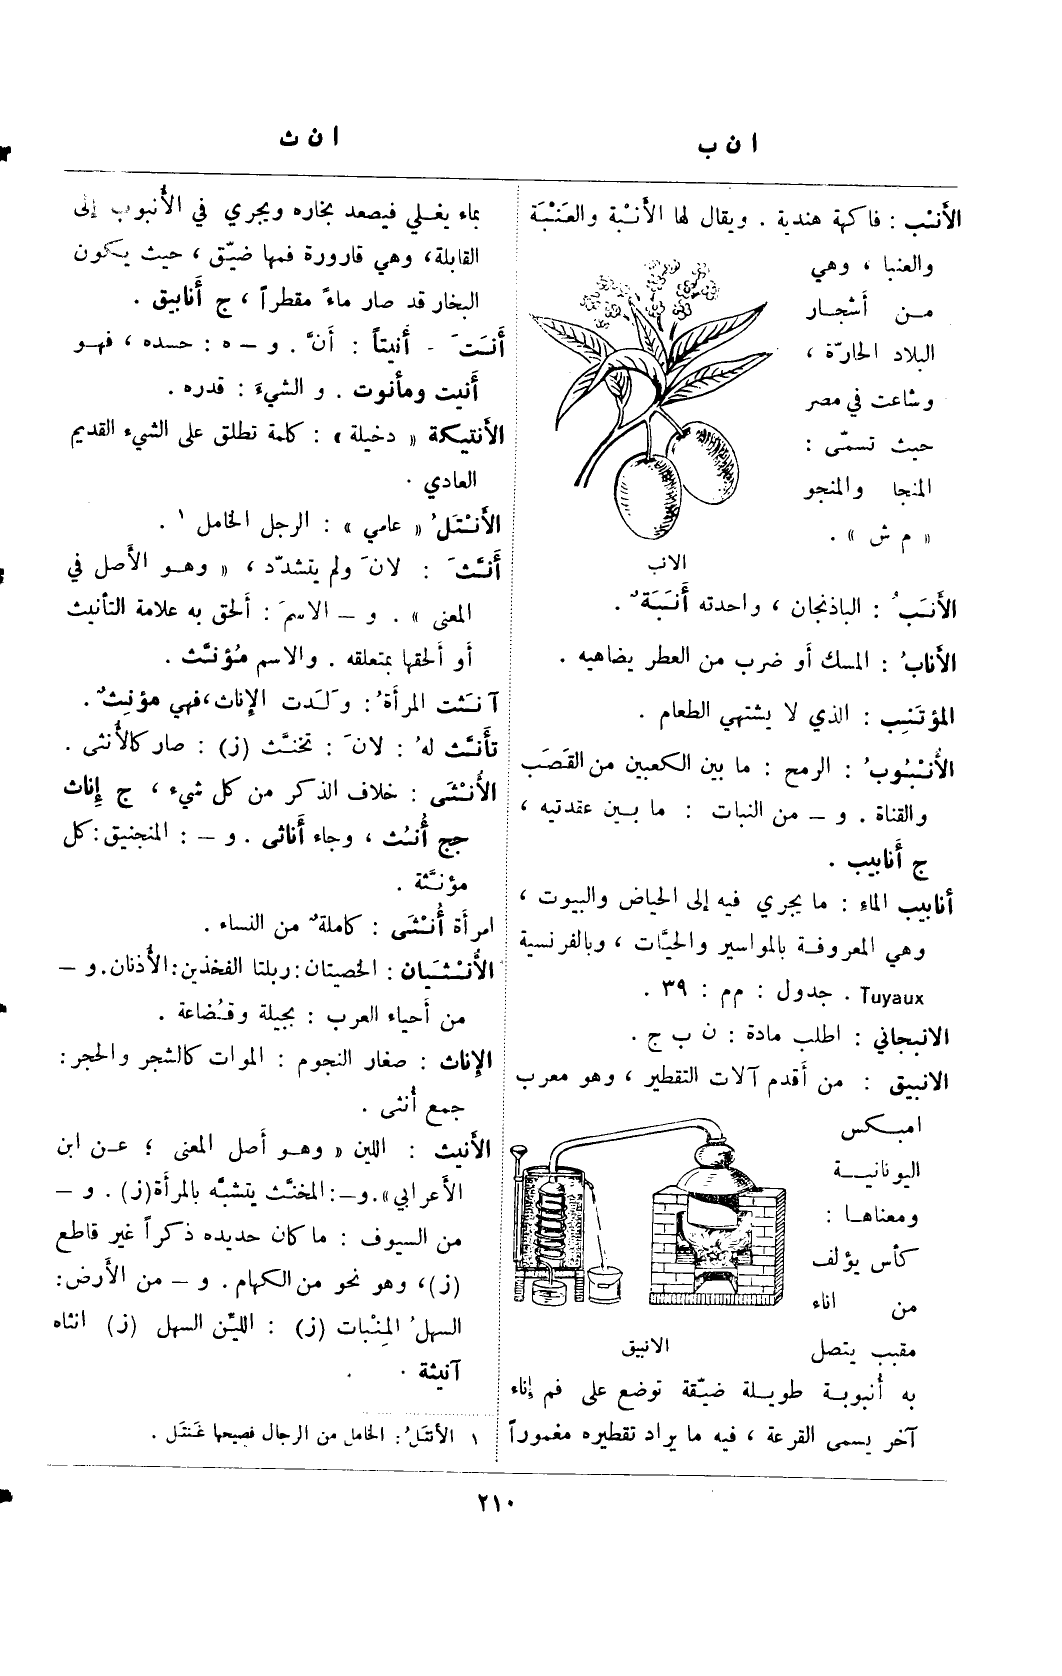 ا ن ب
ا ن ث
الأَنْب : فاكهة هندية . ويقال لها الأَنْبة والعَنْبَة
والعنبا ، وهي
مـن أشجـار
البلاد الحارّة ،
وشاعت في مصر
حيث تسمّى :
المنجا والمنجو
« م ش » .
الانب
الأَنَبُ : الباذنجان ، واحدته أَنَبَةٌ .
الأَنابُ : المسك أو ضرب من العطر يضاهيه .
المؤتَنِب : الذي لا يشتهي الطعام .
الأُنْبُوبُ : الرمح : ما بين الكعبين من القَصَب
والقناة . و – من النبات : ما بـين عقدتيه ،
ج أَنابيب .
أنابيب الماء : ما يجري فيه إلى الحياض والبيوت ،
وهي المعروفة بالمواسير والحيَّات ، وبالفرنسية
Tuyaux . جدول : مم : ٣٩ .
الانبجاني : اطلب مادة : ن ب ج .
الانبيق : من أقدم آلات التقطير ، وهو معرب
امبـكس
اليونانيـة
ومعناهـا :
كأس يؤلف
من اناء
مقبب يتصل
الانبيق
به أُنبوبـة طويـلة ضيّقة توضع على فم إناء
آخر يسمى القرعة ، فيه ما يراد تقطيره مغموراً
بماء يغـلي فيصعد بخاره ويجري في الأُنبوب إلى
القابلة، وهي قارورة فمها ضيّق ، حيث يكون
البخار قد صار ماءً مقطراً ، ج أَنابيق .
أَنَتَ - أَنيتاً : أَنَّ . و – ه : حسده ، فهـو
أَنيت ومأنوت . و الشيءَ : قدره .
الأَنتيكة « دخيلة » : كلمة تطلق على الشيء القديم
العادي .
الأَنْتَلُ « عامي » : الرجل الخامل ١ .
أَنَّثَ : لانَ ولم يتشدّد ، « وهـو الأصل في
المعنى » . و – الاسمَ : ألحق به علامة التأنيث
أو ألحقها بمتعلقه . والاسم مُؤنَّث .
آنَثت المرأةُ : وَلَدت الإناث، فهي مؤنِثٌ .
تأَنَّث لهُ : لانَ : تخنَّث (ز) : صار كالأُنثى .
الأُنْثَى : خلاف الذكر من كل شيء ، ج إِناث
جج أُنُث ، وجاء أَناثى . و – : المنجنيق : كل
مؤنَّثة .
امرأة أُنْثَى : كاملةٌ من النساء .
الأُنْثَيَان : الخصيتان : ربلتا الفخذين : الأذنان . و –
من أحياء العرب : بجيلة وقُضاعة .
الإِناث : صغار النجوم : الموات كالشجر والحجر :
جمع أُنثى .
الأَنيث : اللين « وهـو أصل المعنى ؛ عـن ابن
الأعرابي » . و – : المخنَّث يتشبَّه بالمرأة (ز) . و –
من السيوف : ما كان حديده ذكراً غير قاطع
(ز) ، وهو نحو من الكهام . و – من الأرض :
السهلُ المِنْبات (ز) : الليّن السهل (ز) انثاه
آنيثة .
١ الأَنتَلُ : الخامل من الرجال فصيحها غَنتَل .
٢١٠